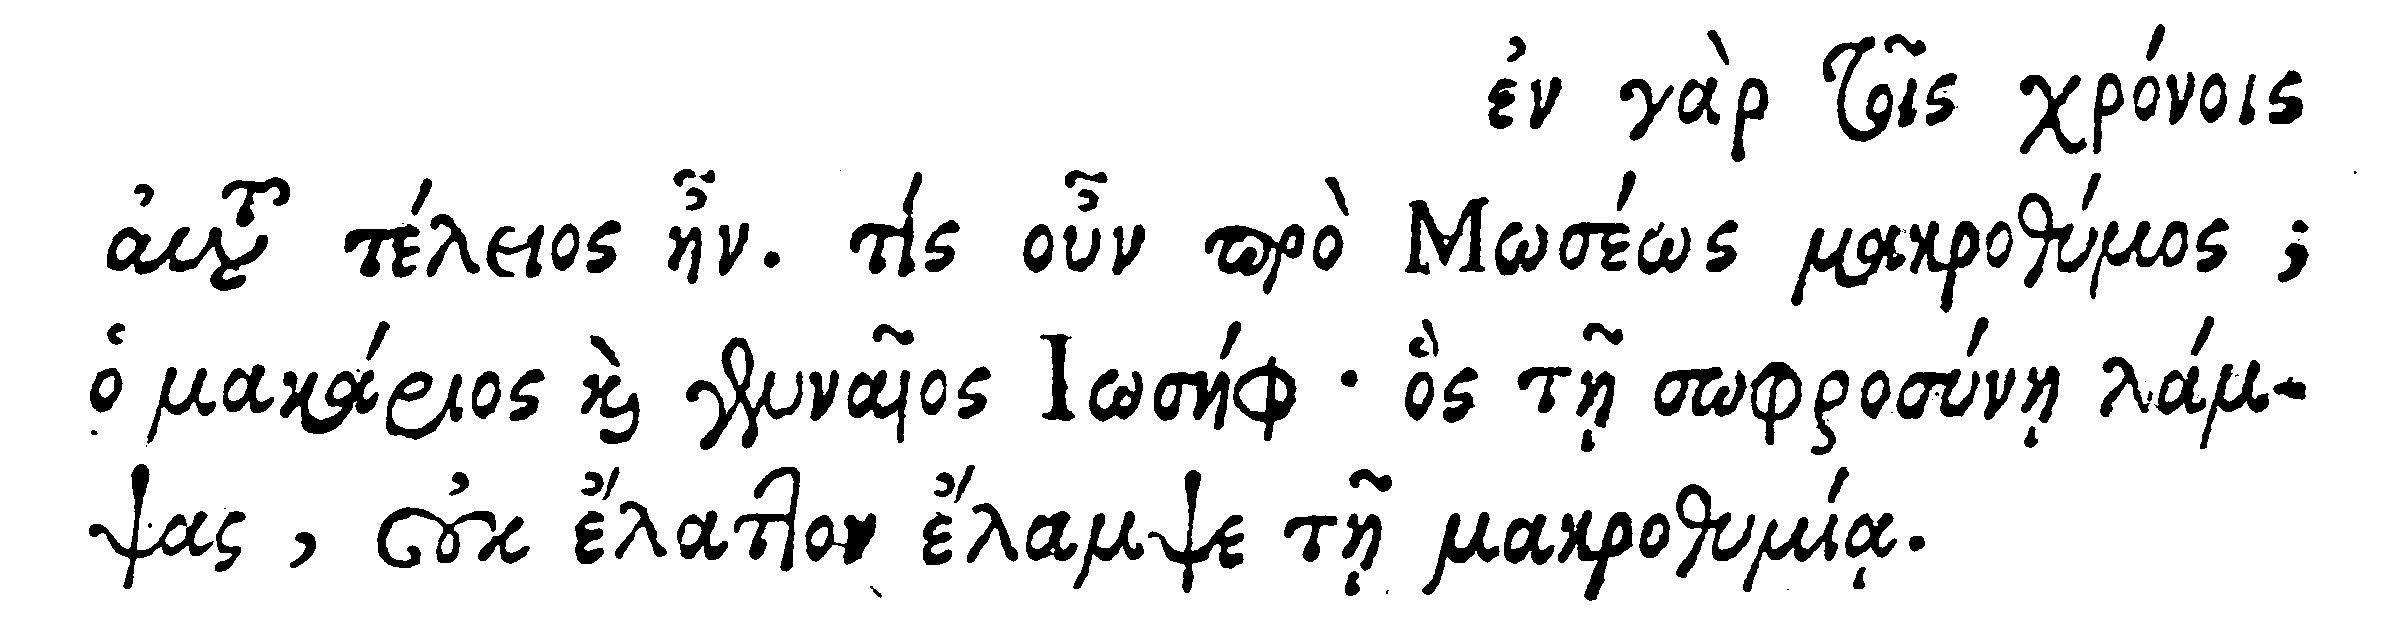 ἐν γὰρ τοῖς χρόνοις
αὐτοῦ τέλειος ἦν. τίς οὖν πρὸ Μωσέως μακροθύμος ;
ὁ μακάριος καὶ γενναῖος Ιωσήφ · ὃς τῇ σωφροσύνῃ λάμ-
ψας , οὐκ ἔλαττον ἔλαμψε τῇ μακροθυμίᾳ.